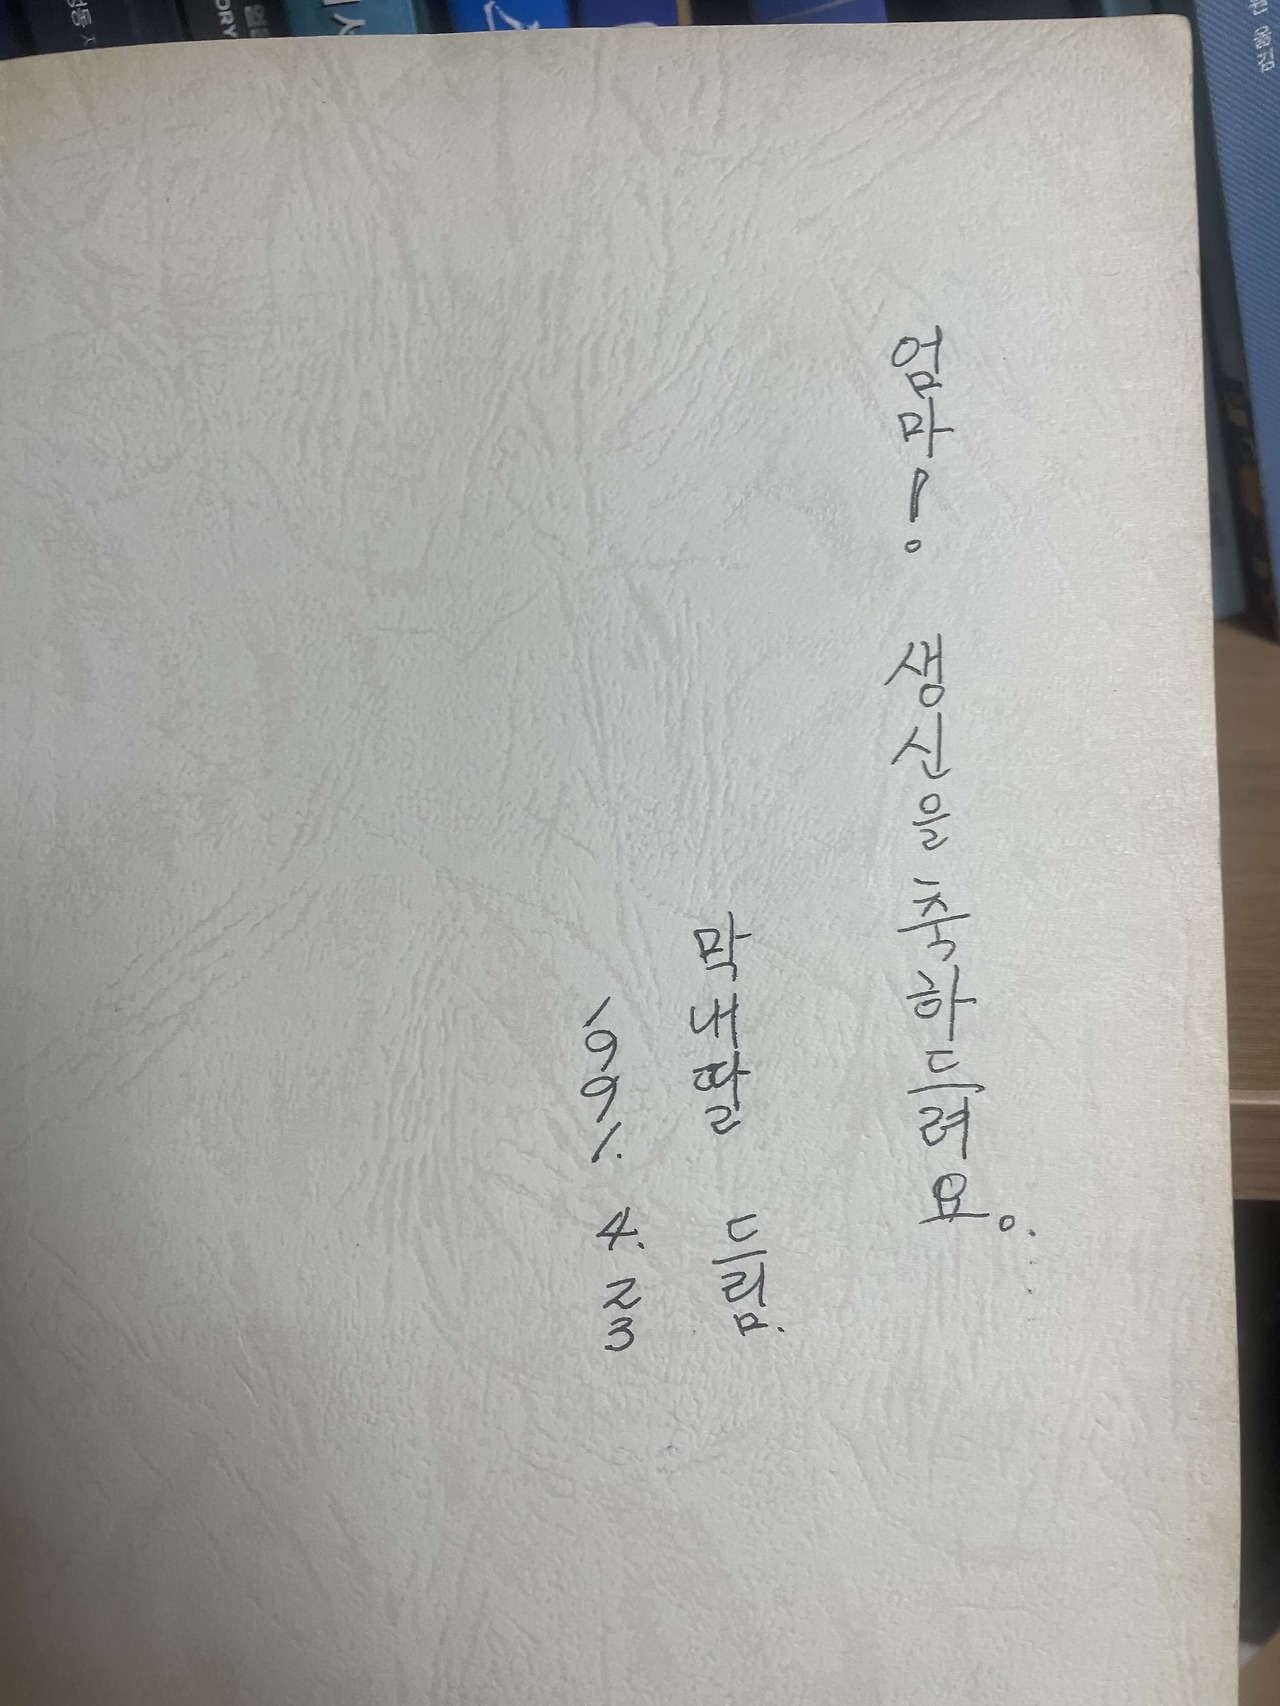 엄마! 생신을 축하드려요.
막내딸 드림.
1991. 4. 23